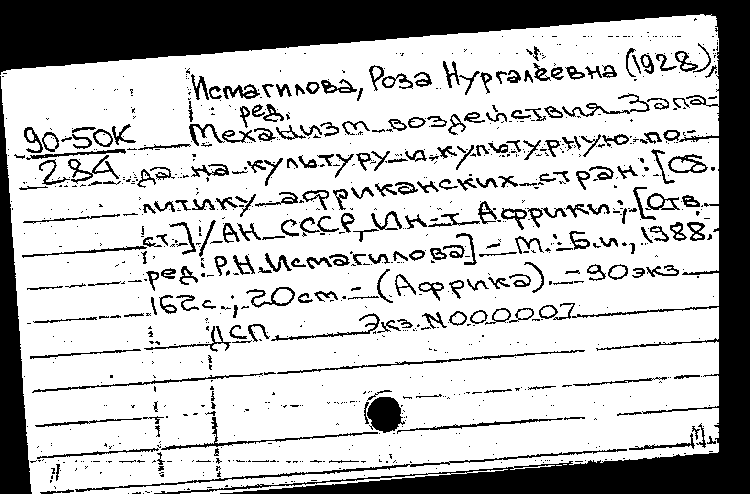 Исмагилова, Роза Нургалеевна (1928),
ред.
90-50К
284
Механизм воздействия Запа-
да на культуру и культурную по-
литику африканских стран: [Сб.
ст.] / АН СССР, Ин-т Африки; [Отв.
ред.: Р.Н. Исмагилова] - М.: Б.и., 1988.-
162 с.; 20 cm. - (Африка). - 90 экз.
ДСП. Экз. N 000007